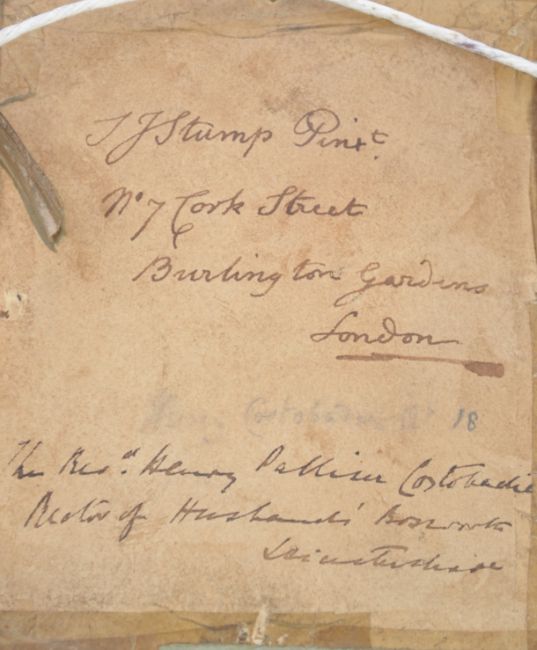 S J Stump Pinxt.
No 7 Cork Street
Burlington Gardens
London
Henry Costobadie 18
The Revd. Henry Palliser Costobadie
Rector of Husbands' Bosworth
Leicestershire